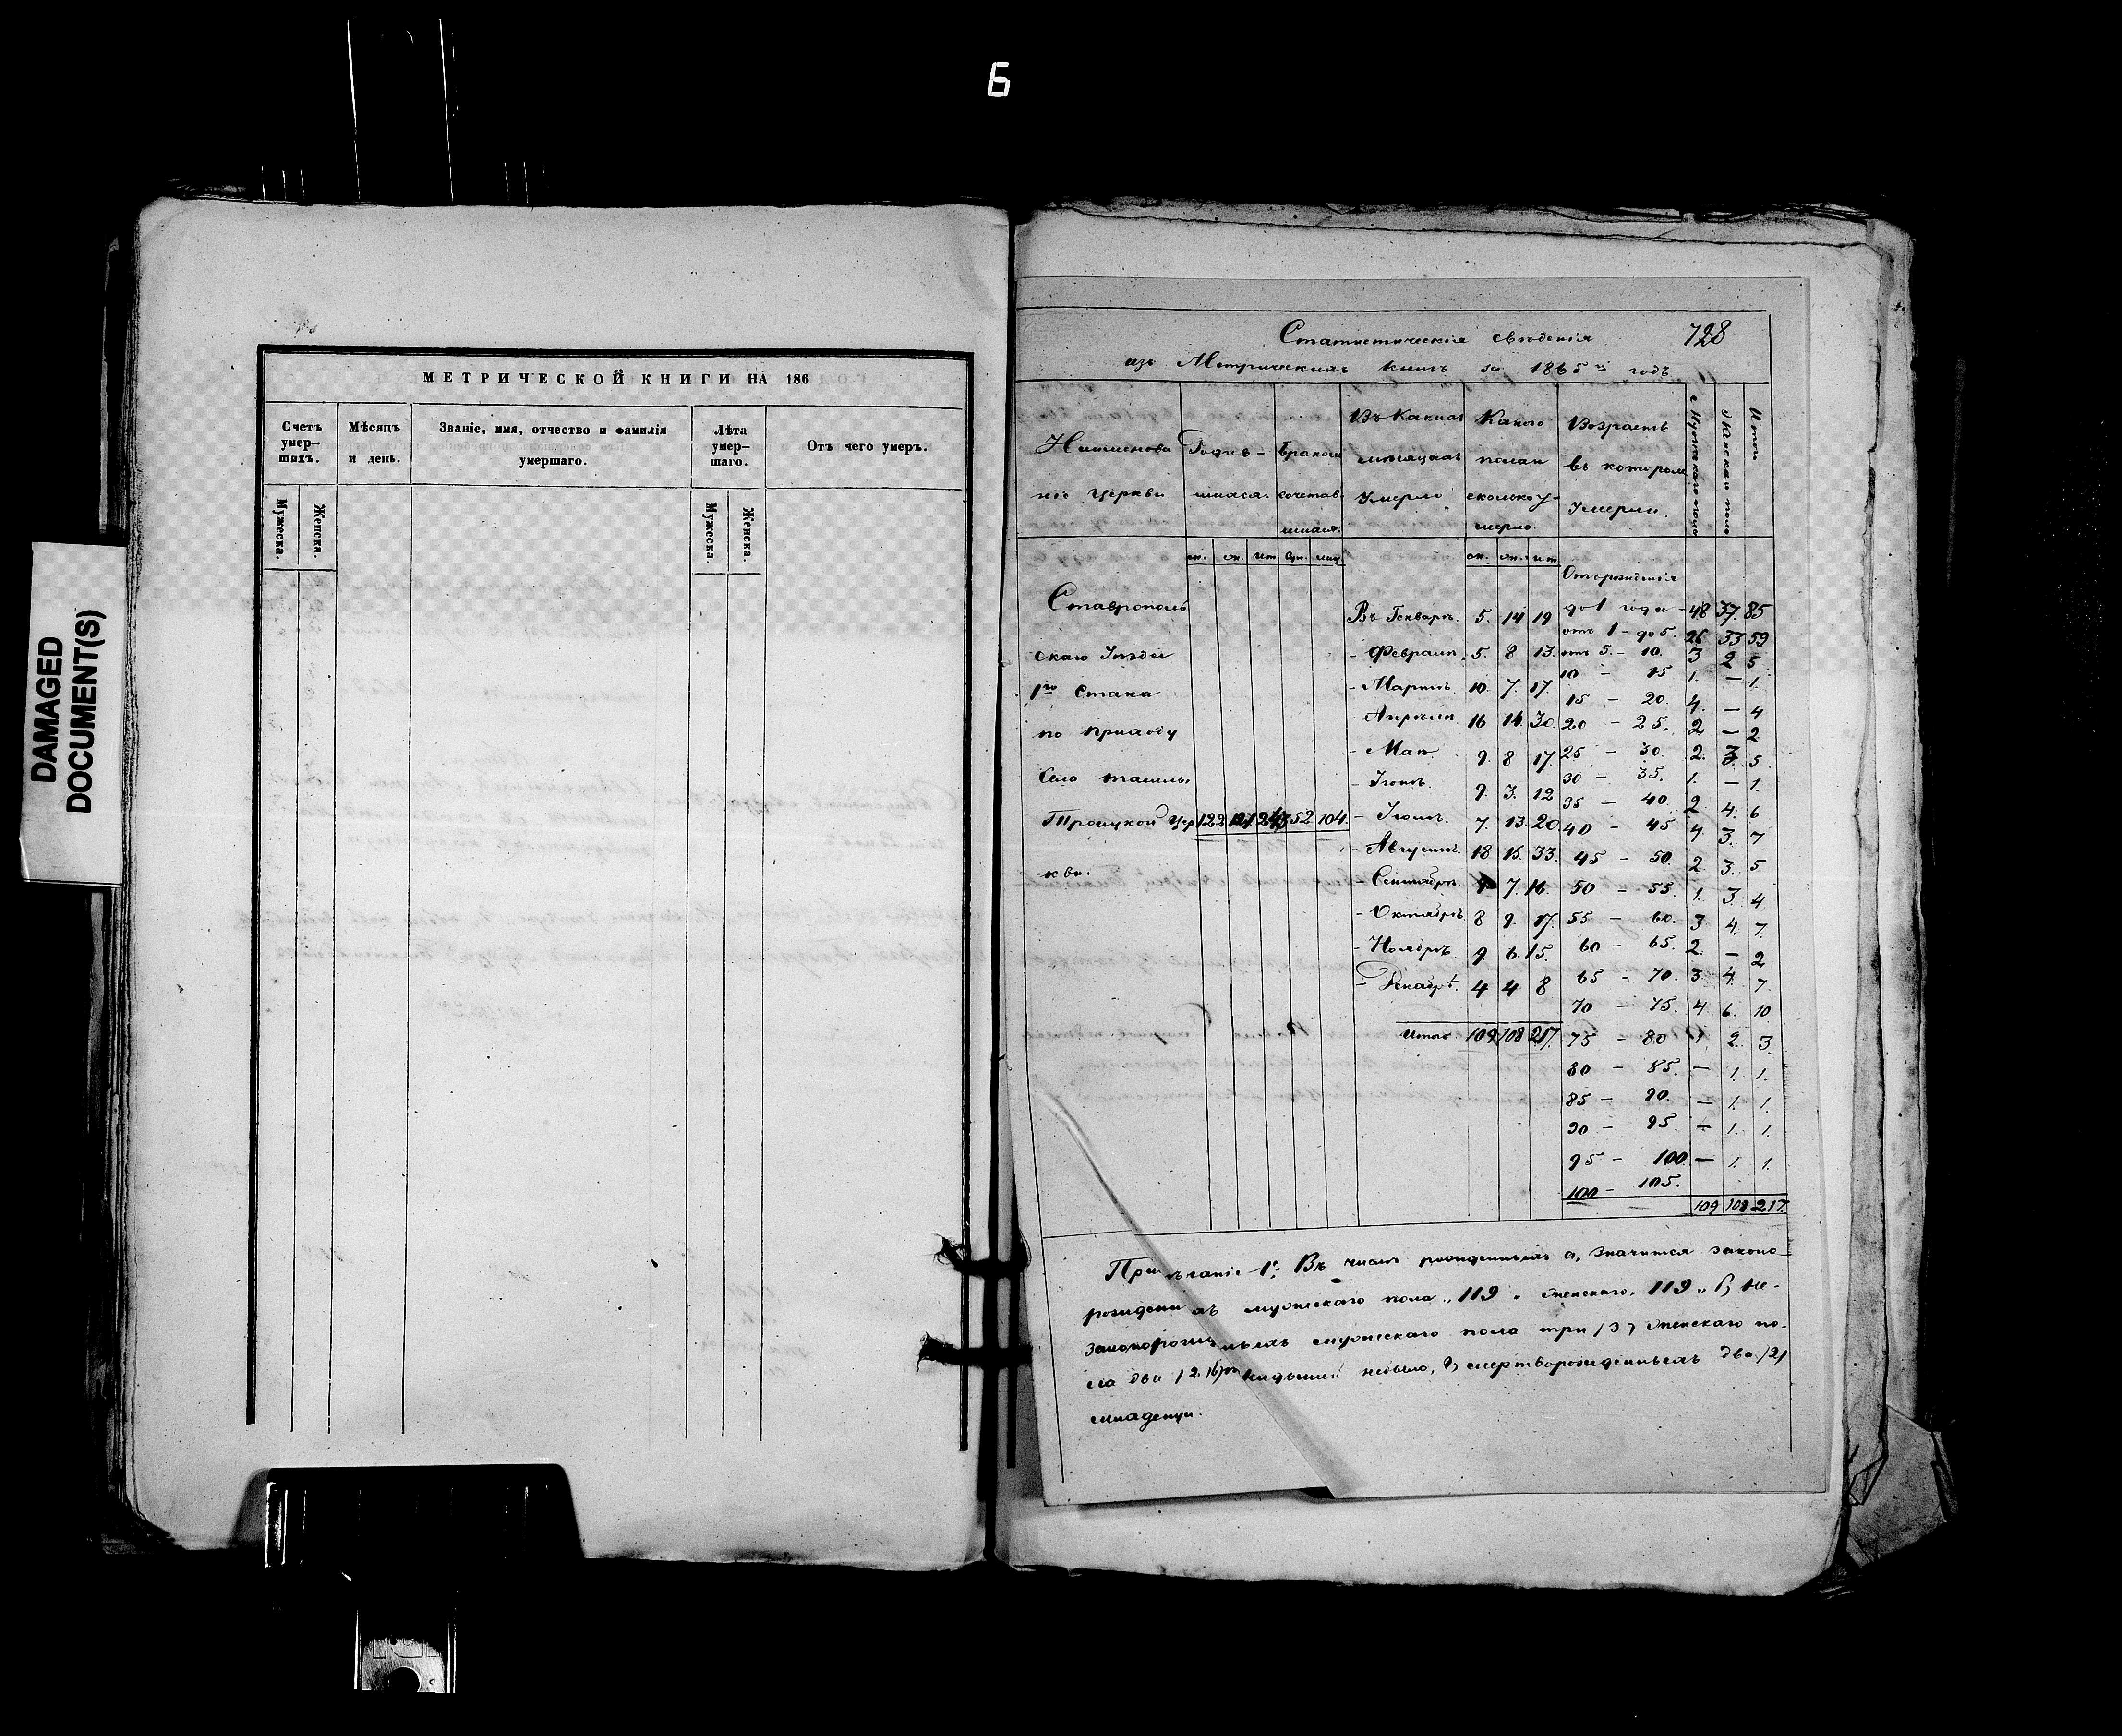 Б
DAMAGED
DOCUMENT(S)
МЕТРИЧЕСКОЙ КНИГИ НА 186
Счетъ умер–шихъ. Мѣсяцъ и день. Званіе, имя, отчество и фамилія умершаго. Лѣта умер–шаго. Отъ чего умеръ.
Мужеска. Женска. Мужеска. Женска.
728
Статистическія свѣденія
изъ Метрическихъ книгъ за 1865й годъ
Наименова Родив– Бракомъ Въ какихъ Какого Возрастъ Мужескаго пола Женскаго пола Итого
ніе Церкви шихся. сочетав– мѣсяцахъ полаи въ которомъ
шихся. Умерло сколько у– Умерли.
мерло.
м. ж. ит. бр. лиц. м. ж. ит.
Отърожденія
Ставрополь Въ Генварѣ. 5. 14 19 до 1 года – 48 37. 85
отъ 1 – до 5. 26 33 59
скаго Уѣзда – Февралѣ. 5. 8 13. отъ 5. – 10. 3 2 5.
10 – 15 1. – 1.
1го Стана – Мартѣ 10. 7. 17. 15 – 20. 4. – 4
по приходу – Апрѣлѣ 16 14. 30. 20 – 25. 2 – 2
– Маѣ. 9. 8 17. 25 – 30. 2. 3 5.
Село – Іюнѣ. 9. 3. 12 30 – 35. 1. – 1.
35 – 40. 2 4. 6
Троицкой Цер 122 121 243 52 104. – Іюлѣ. 7. 13. 20. 40 – 45 4. 3. 7
–кви. – Августѣ. 18 15. 33. 45 – 50. 2. 3. 5
– Сентябрѣ. 9 7. 16. 50 – 55. 1. 3. 4
– Октябрѣ. 8 9. 17. 55 – 60. 3 4. 7.
– Ноябрѣ. 9 6. 15. 60 – 65. 2. – 2
– Декабрѣ. 4 4 8 65 – 70. 3. 4. 7
70 – 75. 4 6. 10
Итого. 109 108 217. 75 – 80 1 2. 3.
80 – 85. – 1. 1.
85 – 90. – 1. 1.
90 – 95. – 1. 1.
95 – 100. – 1. 1.
100 – 105.
109 108 217.
Примѣчаніе 1е: Въ числѣ рожденныхъ а, значится законо–
рожденныхъ мужескаго пола „119„ женскаго „119„ б, не–
законорожденныхъ мужескаго пола три /3/ женскаго по–
ла два /2/ небыло, г, смертворожденныхъ два /2/
младенца.